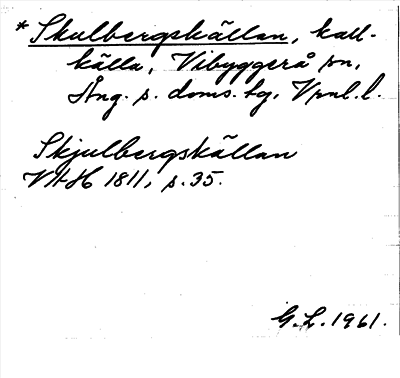 * Skulbergskällan, kall-
källa, Vibyggerå sn,
Ång. s. doms. tg, Vnl. l.
Skjulbergskällan
VAH 1811, s. 35.
G. L. 1961.